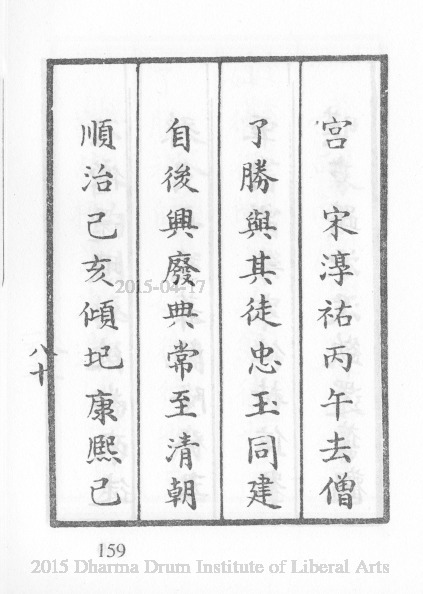 宮　宋淳祐丙午去僧
了勝與其徒忠玉同建
自後興廢典常至清朝
順治己亥傾圮康熙己
八十
2015-04-17
159
2015 Dharma Drum Institute of Liberal Arts